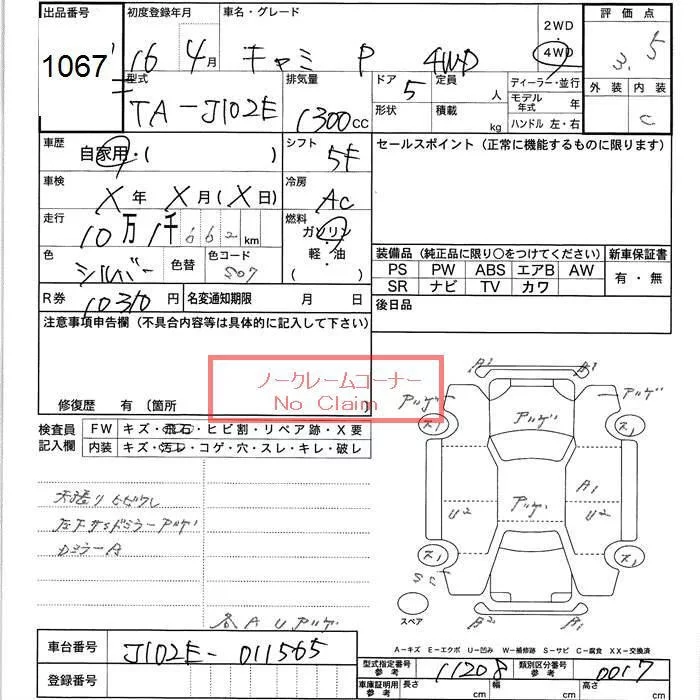 出品番号 初度登録年月 車名・グレード 2WD 4WD 評価点
1067 16年 4月 キャミ P 4WD 3.5
型式 排気量 ドア 定員 人 ディーラー・並行 外装 内装
TA-J102E 1300cc 5 形状 積載 kg モデル年式 年 C
ハンドル 左・右
車歴 自家用・( ) シフト 5F セールスポイント（正常に機能するものに限ります）
車検 X年 X月(X日) 冷房 AC
走行 10万1千662km 燃料 ガソリン・軽・油 ( )
色 シルバー 色替 色コード S07 装備品（純正品に限り○をつけてください） 新車保証書
PS PW ABS エアB AW 有・無
SR ナビ TV カワ
R券 10310円 名変通知期限 月 日 後日品
注意事項申告欄（不具合内容等は具体的に記入して下さい）
ノークレームコーナー
No Claim
修復歴 有〔箇所
検査員記入欄 FW キズ・飛石・ヒビ割・リペア跡・X要
内装 キズ・汚レ・コゲ・穴・スレ・キレ・破レ
A1 A1
アツゲ アツゲ
アツゲ
アツゲ
U2 A1 U2
スペア
A2 A1
各AUアツゲ
A－キズ E－エクボ U－凹み W－補修跡 S－サビ C－腐食 XX－交換済
車台番号 J102E-011565
登録番号
型式指定番号 参考 11208 類別区分番号 参考 0017
車庫証明用 参考 長さ cm 幅 cm 高さ cm